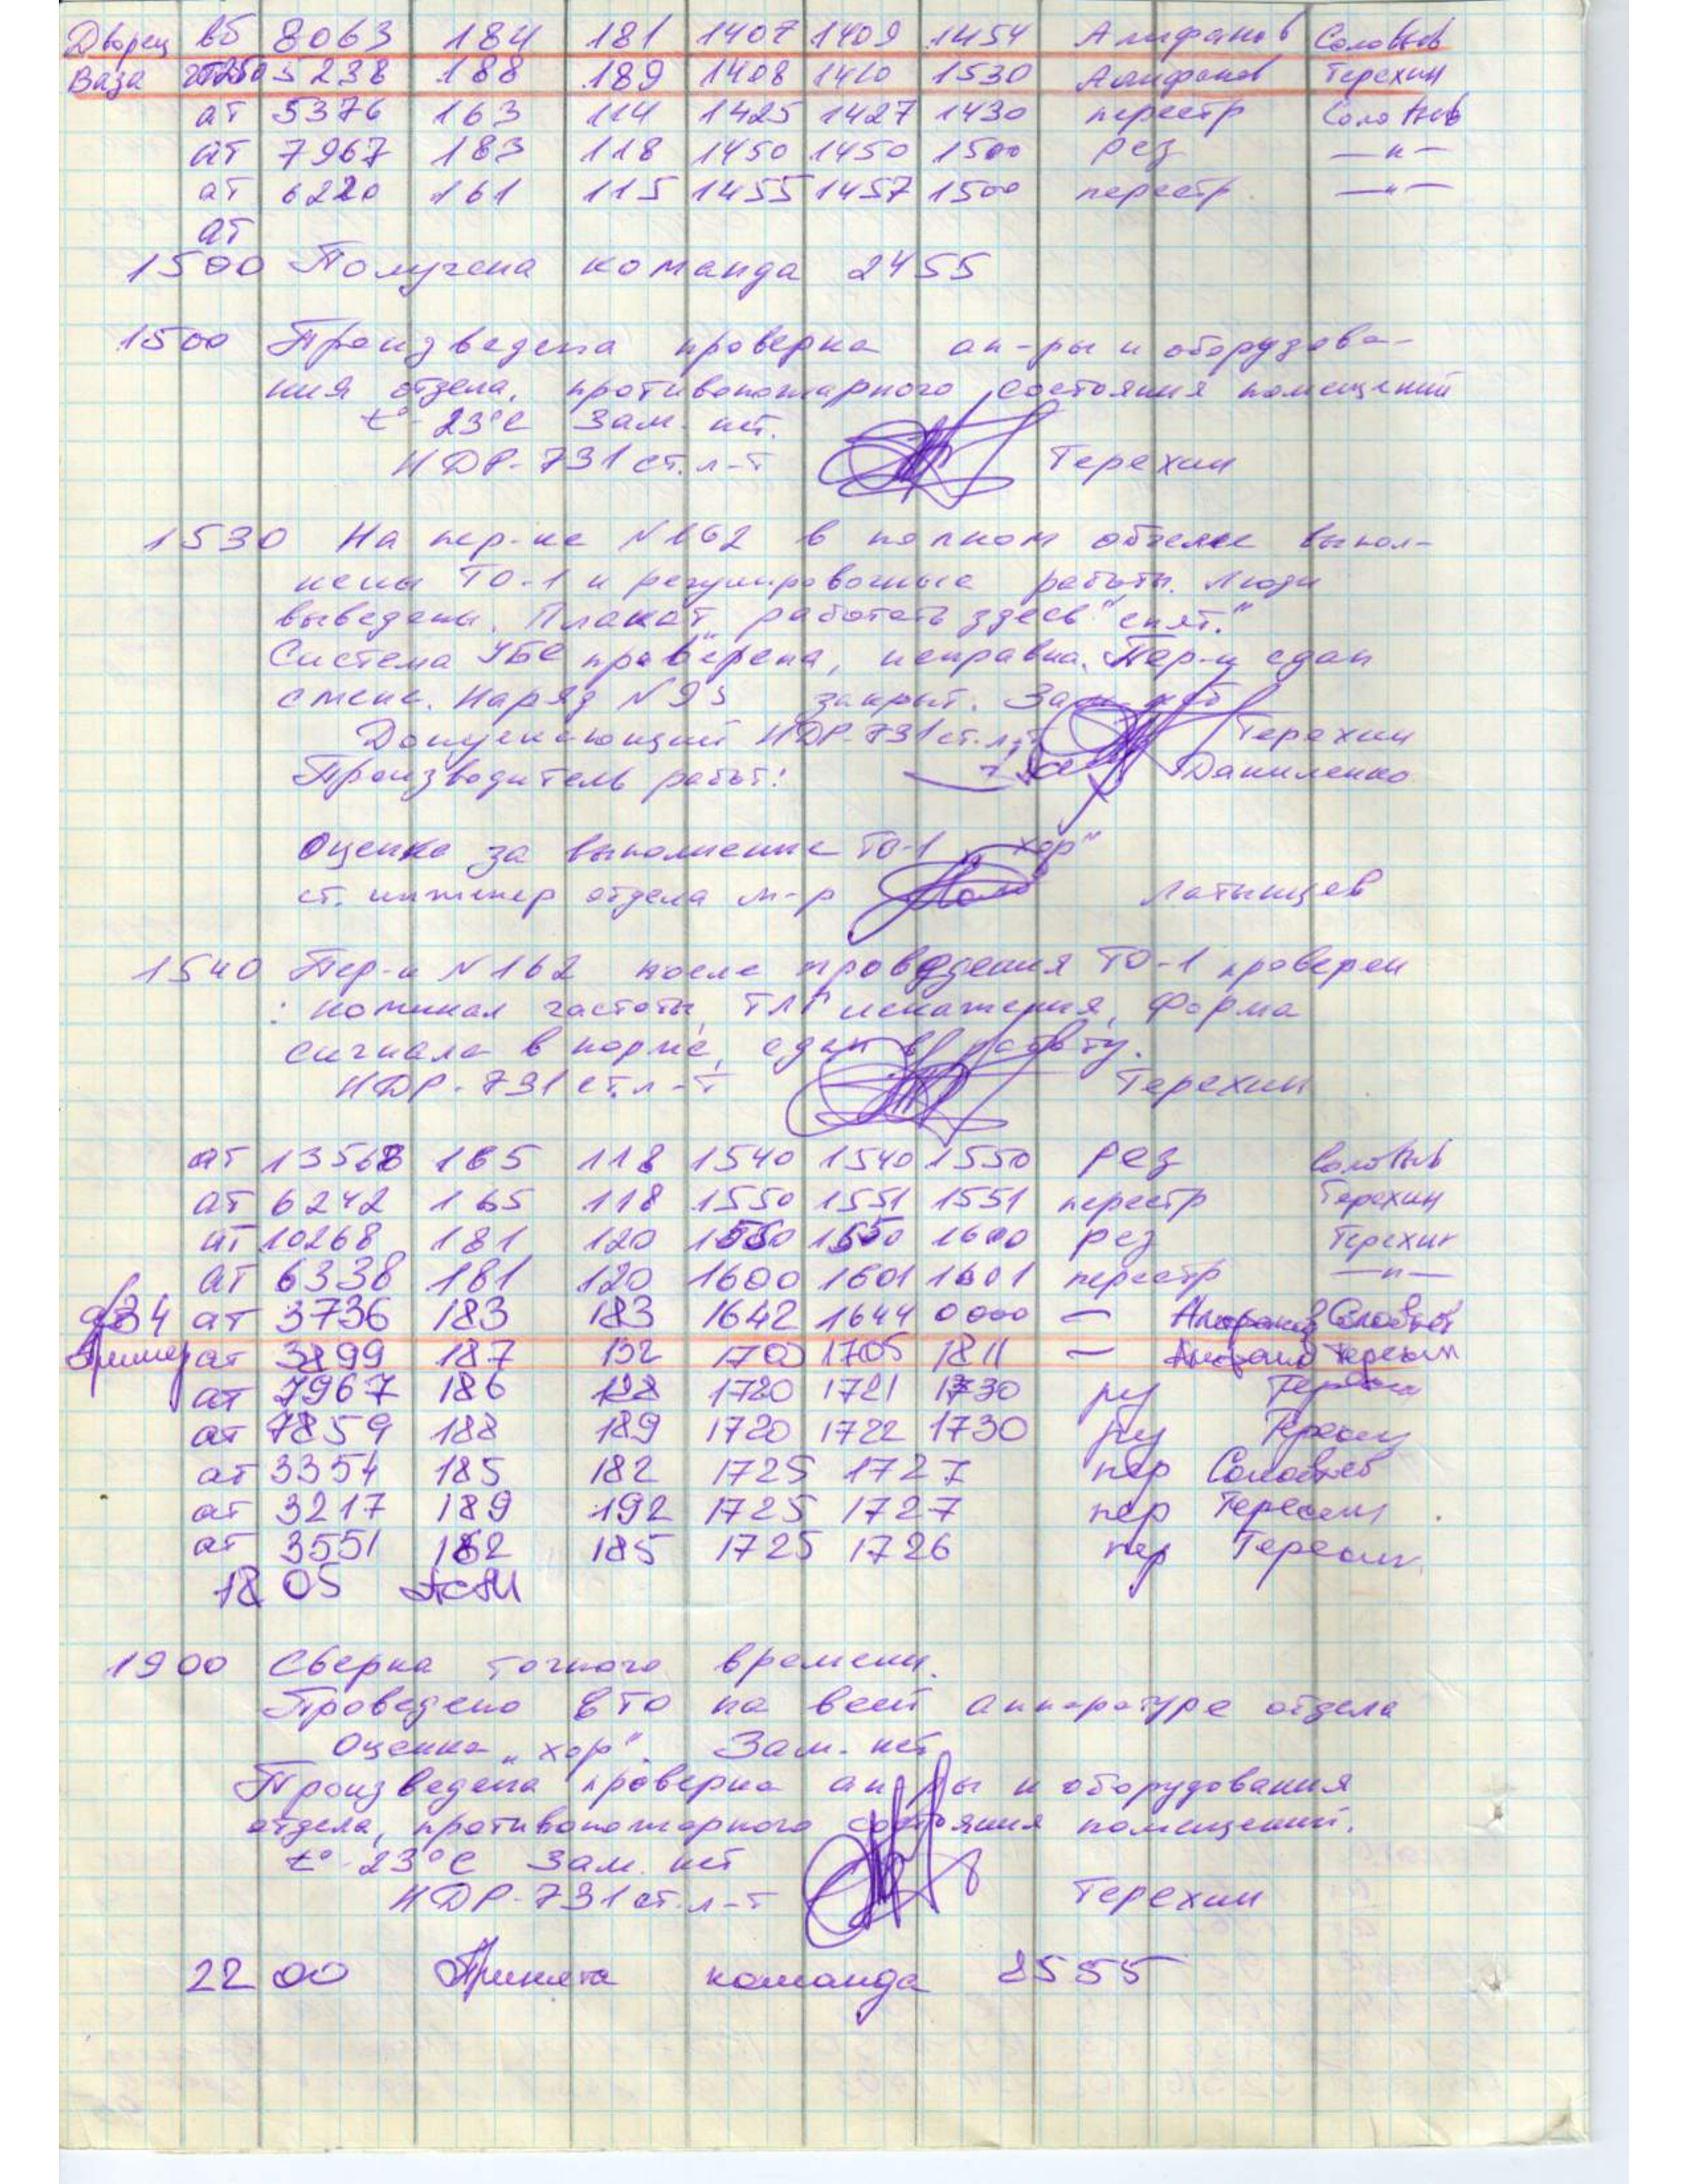 Дворец вб 8063 184 181 1407 1409 1454 Алифанов Соловьев
Ваза 5238 188 189 1408 1410 1530 Алифанов Терехин
ат 5376 163 114 1425 1427 1430 перестр Соловьев
ат 7967 183 118 1450 1450 1500 рез —"—
ат 6220 161 115 1455 1457 1500 перестр. —"—
ат
1500 Получена команда 2455
1500 Произведена проверка ап-ры и оборудова-
ния отдела, противопожарного состояния помещений
t°-23°С Зам. нет.
НДР-731 ст. л-т Терехин
1530 На пер-ке N162 в полном объеме выпол-
нены ТО-1 и регулировочные работы. Люди
выведены. Плакат „работать здесь" снят.
Система УБС проверена, исправна. Пер-к сдан
смене. Наряд N 93 закрыт. Зам. нет
Допускающий НДР-731 ст. л-т Терехин
Производитель работ: Даниленко
Оценка за выполнение ТО-1 „хор"
ст. инженер отдела м-р Латынцев
1540 Пер-к N162 после проведения ТО-1 проверен
: номинал частоты, ТЛГ искажения, форма
сигнала в норме, сдан в работу.
НДР-731 ст. л-т Терехин
ат 13568 165 118 1540 1540 1550 рез Соловьев
ат 6242 165 118 1550 1551 1551 перестр Терехин
ат 10268 181 120 1550 1550 1600 рез Терехин
ат 6338 181 120 1600 1601 1601 перестр —"—
ат 3736 183 183 1642 1644 0000 — Алифанов Соловьев
ат 3899 187 132 1700 1705 1811 — Алифанов Терехин
ат 7967 186 1720 1721 1730 ру Терехин
ат 7859 188 189 1720 1722 1730 ру Терехин
ат 3354 185 182 1725 1727 пер Соловьев
ат 3217 189 192 1725 1727 пер Терехин
ат 3551 182 185 1725 1726 пер Терехин
18 05
1900 Сверка точного времени.
Проведено ЕТО на всей аппаратуре отдела
Оценка „хор". Зам. нет
Произведена проверка ап-ры и оборудования
отдела, противопожарного состояния помещений.
t°-23°С Зам. нет
НДР-731 ст. л-т Терехин
22 00 Принята команда 8555